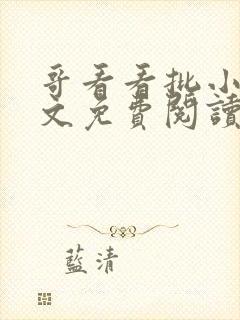 哥看看批小
文免費閱讀
藍清